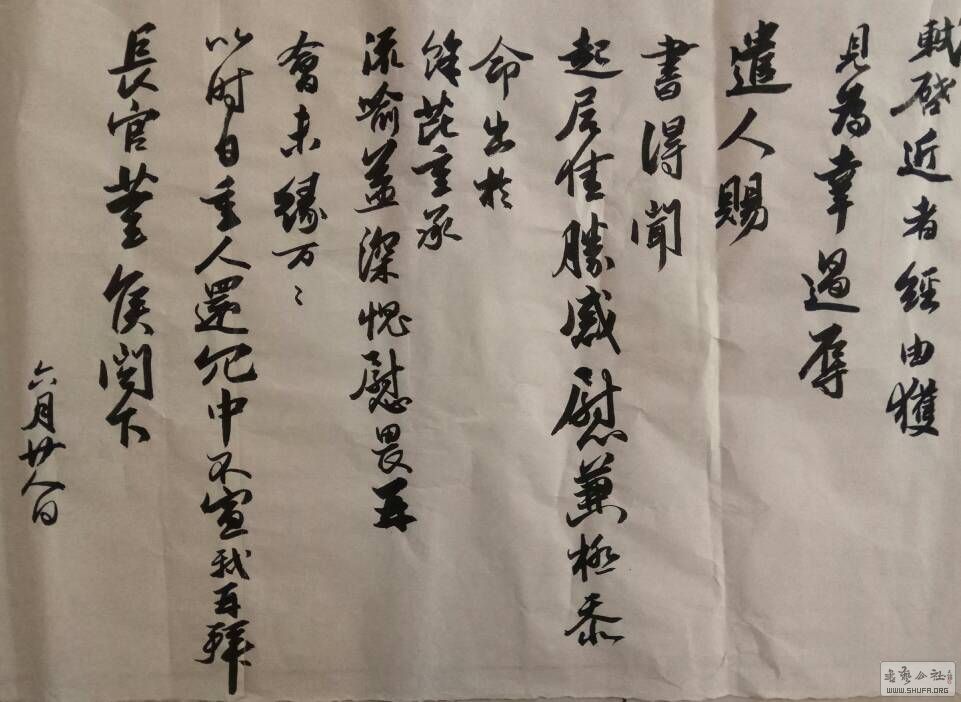 軾啓近者經由獲
見為幸過辱
遣人賜
書得聞
起居佳勝感慰兼極忝
命出於
餘芘重承
流喻益深愧慰畏再
會未緣万〻
以时自重人還冗中不宣軾再拜
長官董侯閤下
六月廿八日
书艺公社
WWW.SHUFA.ORG